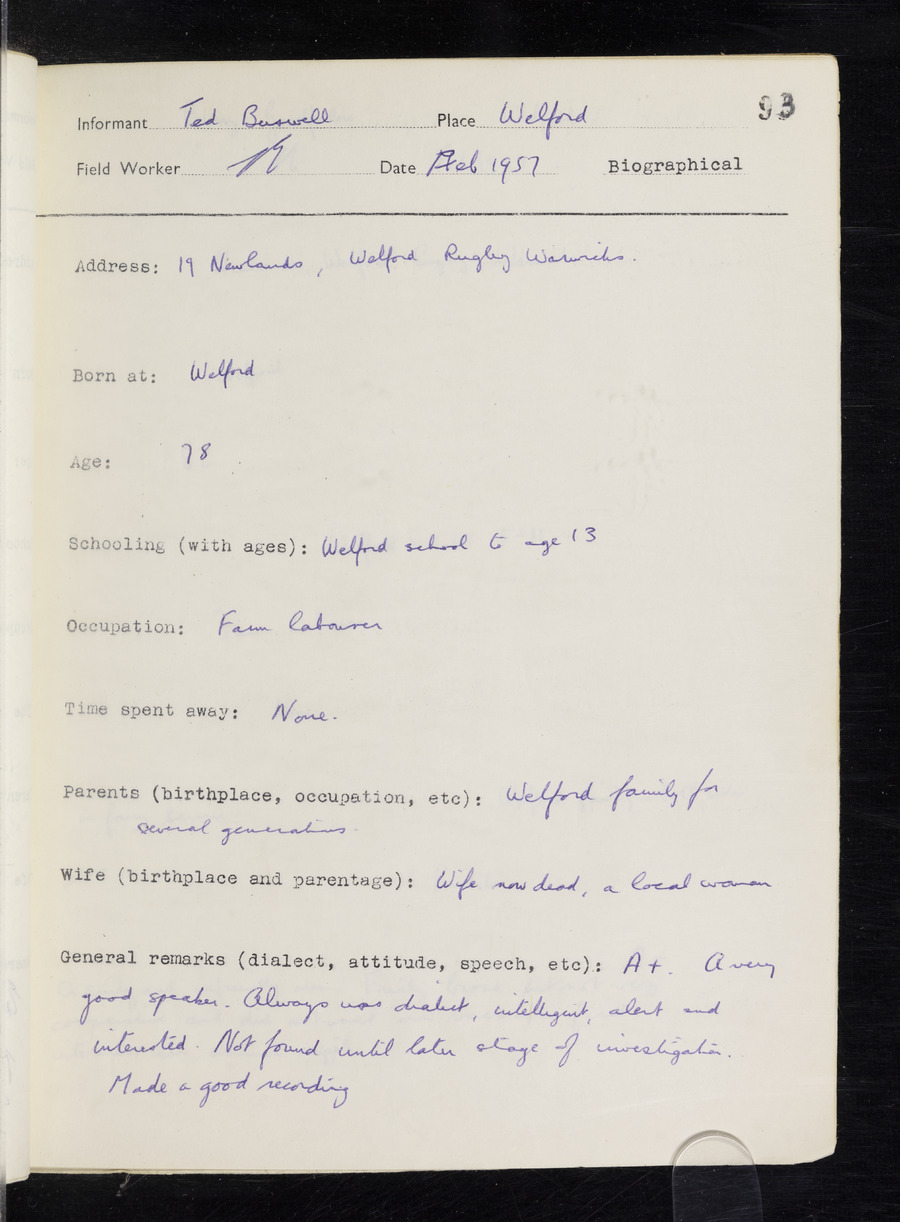 93
Informant Ted Buswell Place Welford
Field Worker Date Feb 1957 Biographical
Address: 19 Newlands, Welford Rugby Warwicks.
Born at: Welford
Age: 78
Schooling (with ages): Welford school to age 13
Occupation: Farm labourer
Time spent away: None.
Parents (birthplace, occupation, etc): Welford family for
several generations.
Wife (birthplace and parentage): Wife now dead, a local woman
General remarks (dialect, attitude, speech, etc): A+. A very
good speaker. Always uses dialect, intelligent, alert and
interested. Not found until later stage of investigation.
Made a good recording